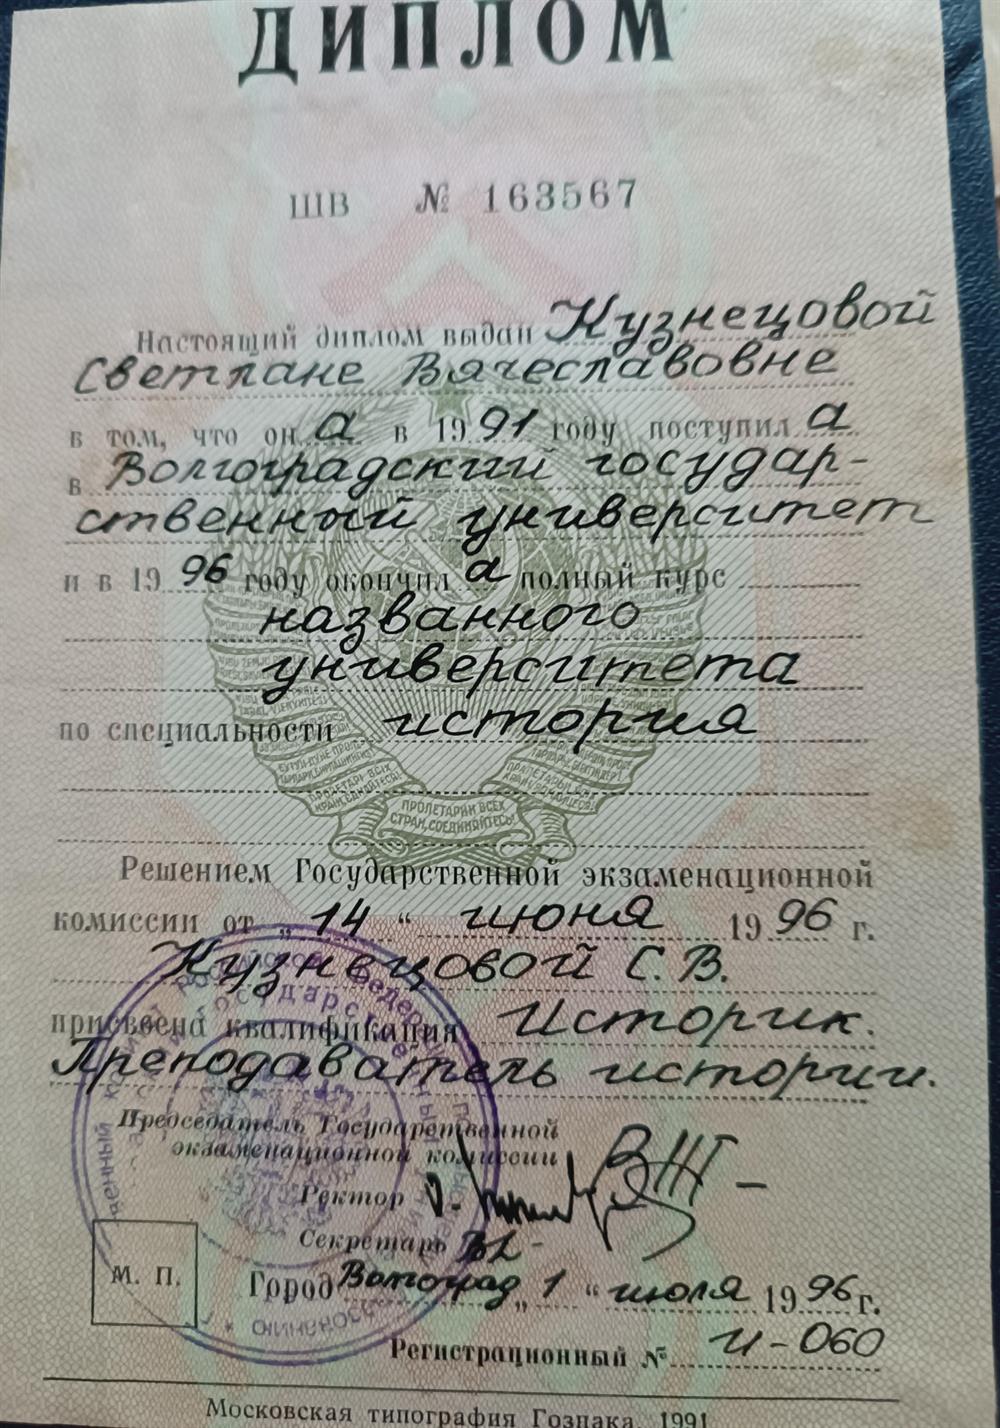 ДИПЛОМ
ШВ № 163567
Настоящий диплом выдан Кузнецовой
Светлане Вячеславовне
в том, что он а в 1991 году поступил а
в Волгоградский государ-
ственный университет
и в 1996 году окончил а полный курс
названного
университета
по специальности история
ПРОЛЕТАРИИ ВСЕХ
СТРАН, СОЕДИНЯЙТЕСЬ!
Решением Государственной экзаменационной
комиссии от „ 14 “ июня 1996 г.
Кузнецовой С. В.
присвоена квалификация Историк.
Преподаватель истории.
Председатель Государственной
экзаменационной комиссии
Ректор
Секретарь
М. П.
Город Волгоград „ 1 “ июля 1996 г.
Регистрационный № И-060
Московская типография Гознака. 1991.